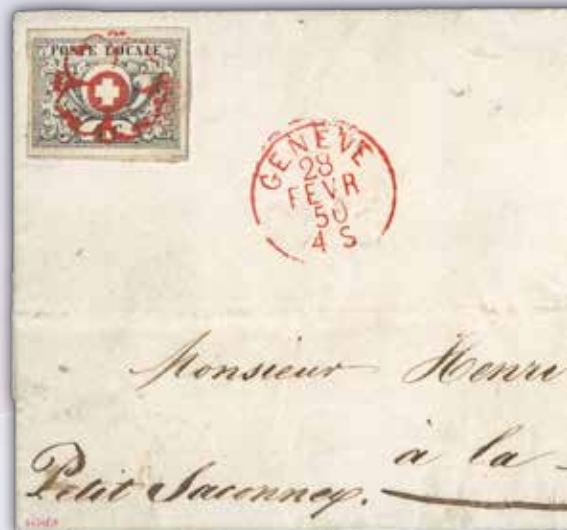 POSTE LOCALE
GENEVE
28
FEVR
50
4 S
Monsieur Henri
à la
Petit Saconnex.